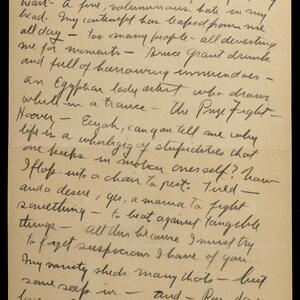 heart - A fine, voluminous hate in my
head. My contempt has leaped from me
all day - too many people - all diverting
me for moments - Bruce Grant drunk
and full of harrowing innuendoes -
an Egyptian lady artist who draws
whilst in a trance - The Prize Fight -
Hoover - can you tell me why
life is a whirligig of stupidities that
one keeps in motion oneself? Now
I flop into a chair to rest. Tired -
and a desire, yes, a mama to fight
something - to beat against tangible
things - all this because I must try
to forget suspicions I have of you
My vanity sheds many thots - but
some seep in - and -